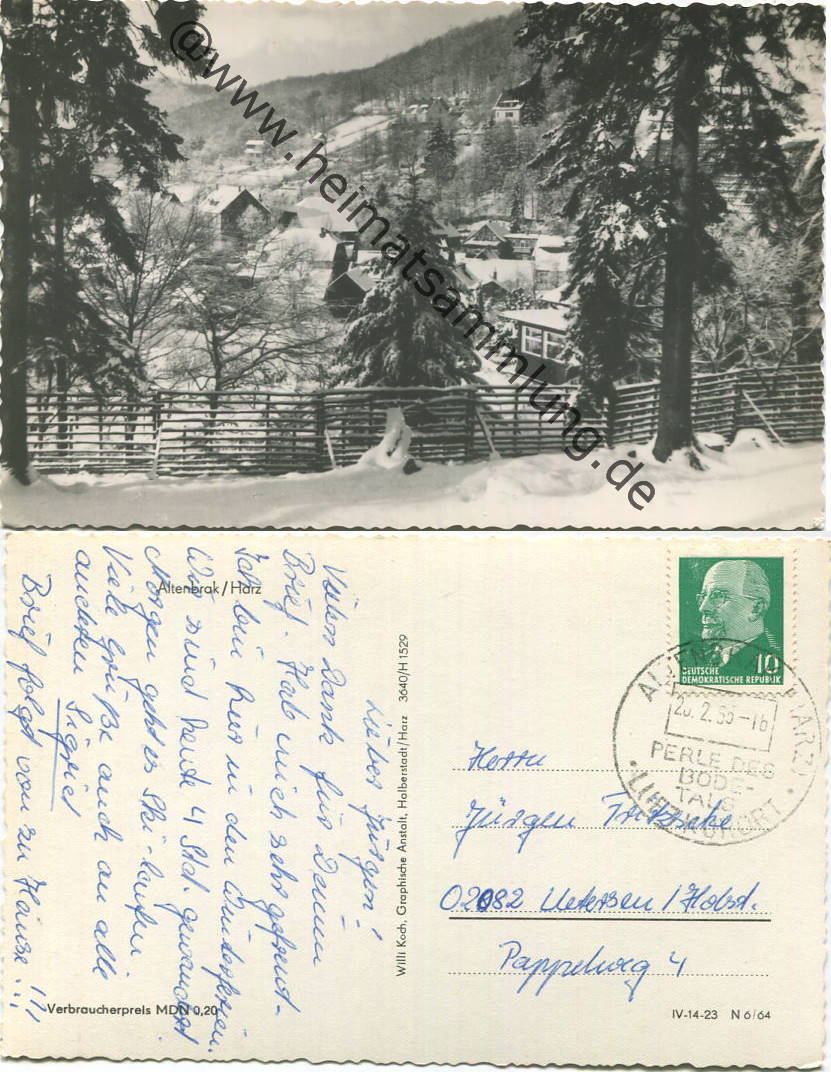 @www.heimatsammlung.de
Altenbrak/Harz
Lieber Jürgen!
Vielen Dank für Deinen
Brief. Hab mich sehr gefreut.
Ich bin hier in den Winterferien.
Wir sind heute 4 Std. gewandert.
Morgen geht es Ski-laufen.
Viele Grüße auch an alle
anderen Sigrid
Brief folgt von zu Hause!!!
Verbraucherpreis MDN 0,20
Willi Koch, Graphische Anstalt, Halberstadt/Harz 3640/H 1529
10
DEUTSCHE
DEMOKRATISCHE REPUBLIK
ALTENBRAK HARZ
2.65-16
PERLE DES
BODE-
TALS
LUFTKURORT
Herrn
Jürgen Fritzsche
02082 Uetersen/Holst.
Pappelweg 4
IV-14-23 N 6/64